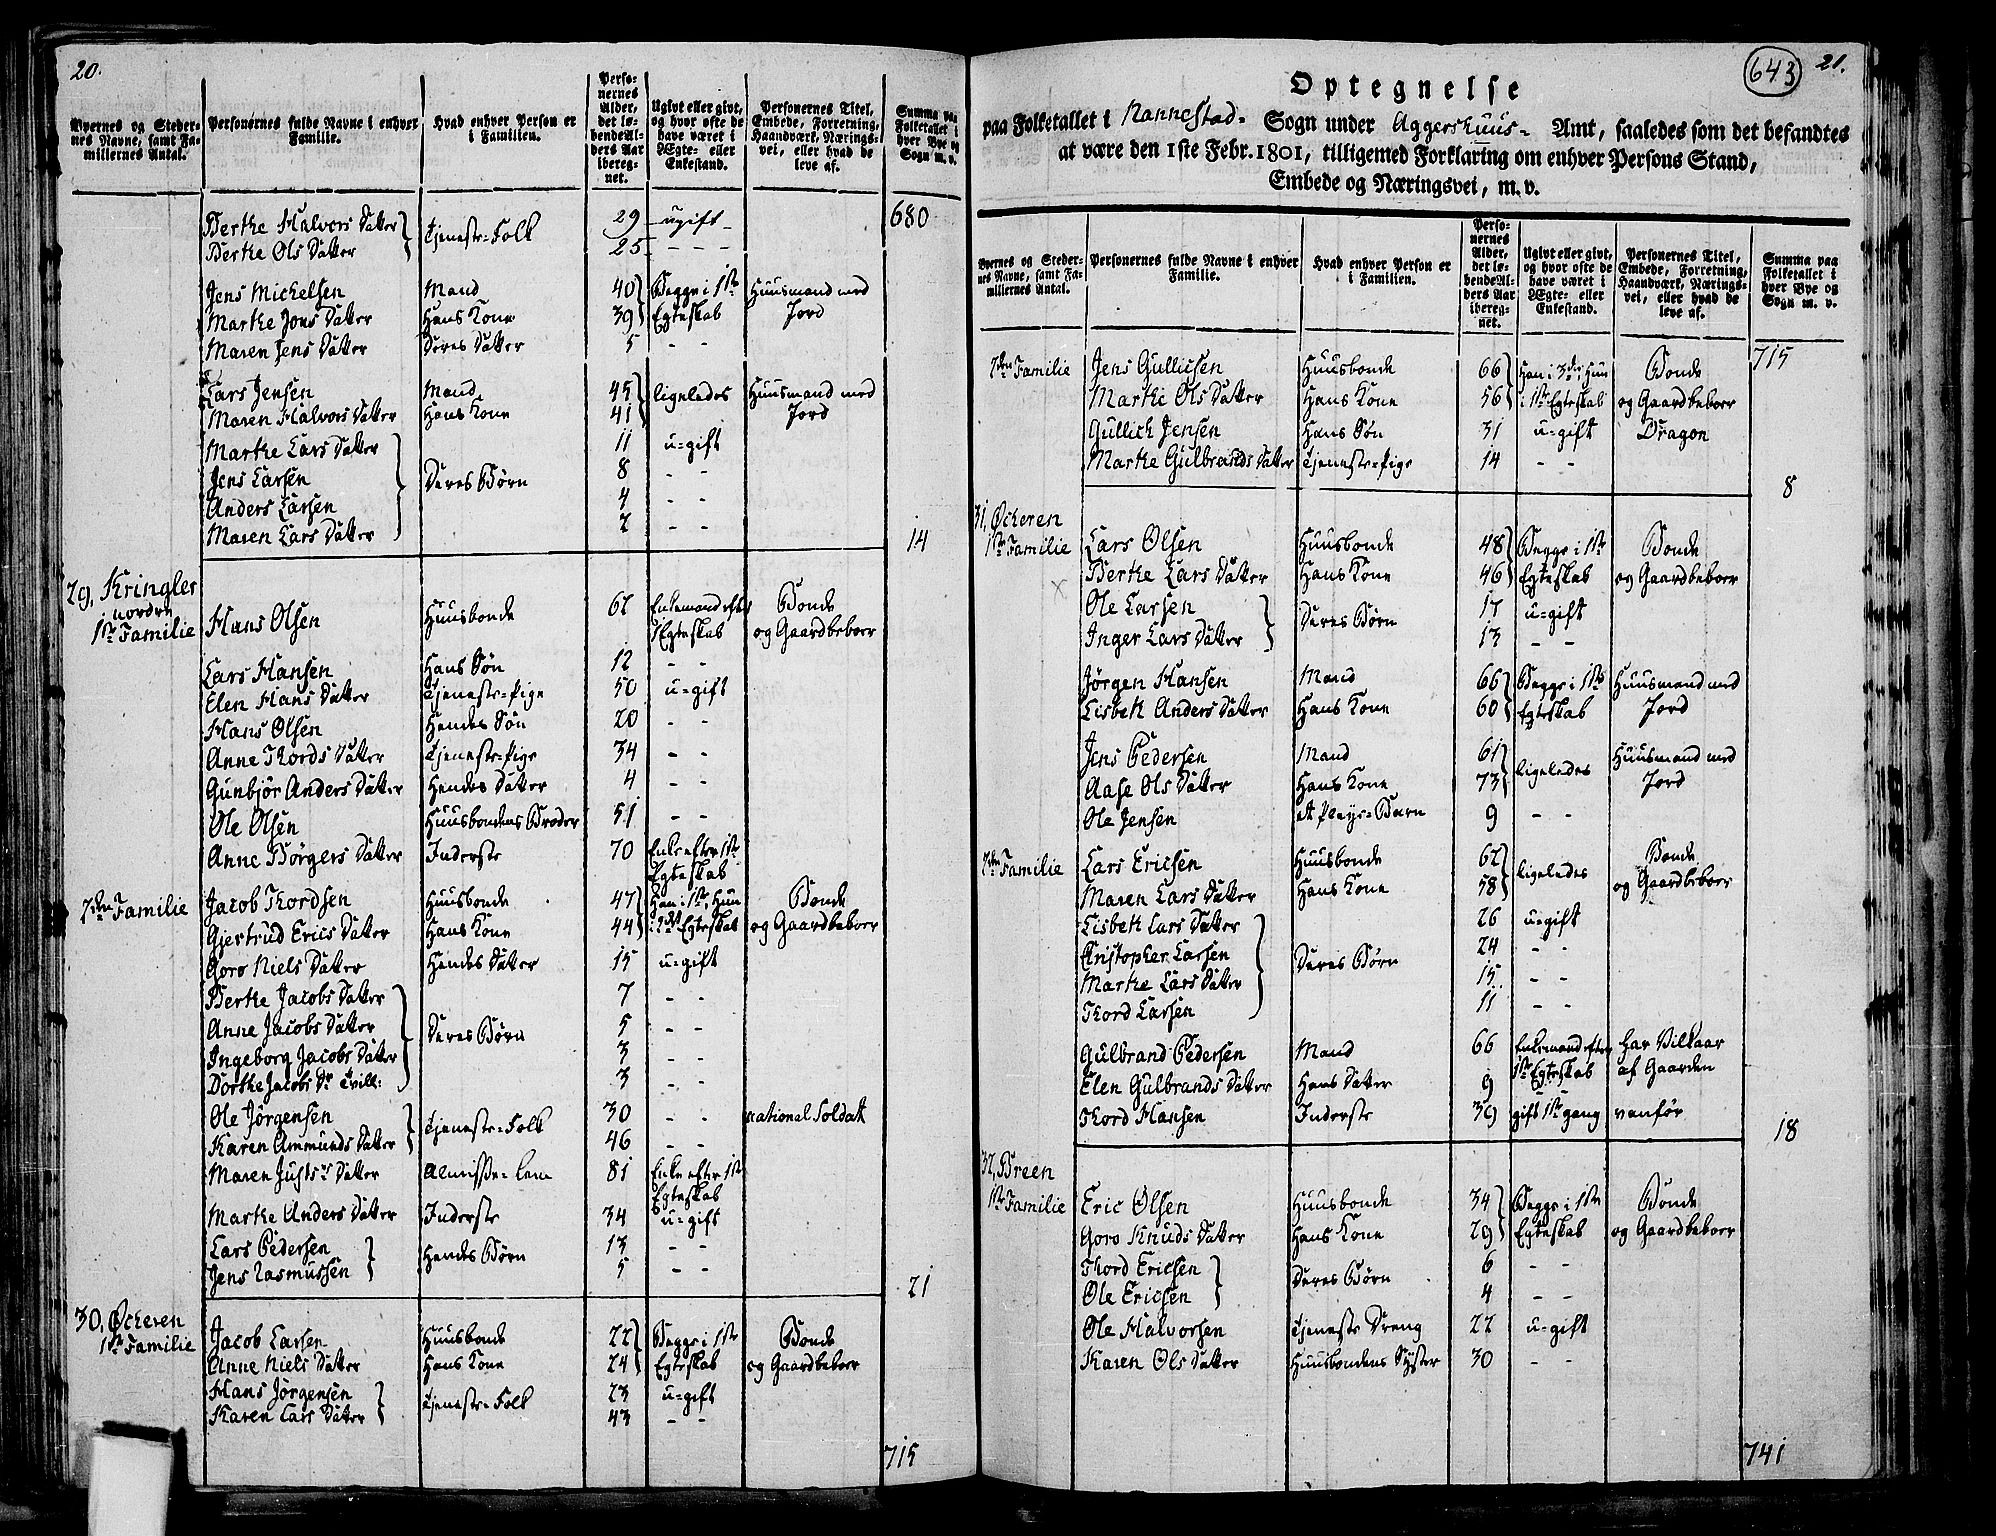 20.
Byernes og Steder-
nes Navne, samt Fa-
milliernes Antal.
Personernes fulde Navne i enhver
Familie.
Hvad enhver Person er
i Familien.
Perso-
nernes
Alder,
det lø-
bende Al-
ders Aar
ibereg-
net.
Ugivt eller givt,
og hvor ofte de
have været i
Ægte- eller
Enkestand.
Personernes Titel,
Embede, Forretning,
Haandværk, Nærings-
vei, eller hvad de
leve af.
Summa paa
Folketallet i
hver Bye og
Sogn m. v.
680
Berthe Halvors Datter Tjeneste-Folk 29 ugift
Berthe Ols Datter 25 - - -
Jens Michelsen Mand 40 Begge i 1ste Huusmand med
Marthe Jons Datter Hans Kone 39 Egteskab Jord
Maren Jens Datter Deres Datter 5 - -
Lars Jensen Mand 45 ligeledes Huusmand med
Maren Halvors Datter Hans Kone 41 Jord
Marthe Lars Datter 11 u-gift
Jens Larsen Deres Børn 8 - -
Anders Larsen 4 - -
Maren Lars Datter 2 - - 14
29, Kringler
norden
1ste Familie Hans Olsen Huusbonde 62 Enkemand efter Bonde
1 Egteskab og Gaardbeboer
Lars Hansen Hans Søn 12 - -
Elen Hans Datter Tjeneste-Pige 50 u-gift
Hans Olsen Hendes Søn 20 - -
Anne Thords Datter Tjeneste-Pige 34 - -
Gunbjør Anders Datter Hendes Datter 4 - -
Ole Olsen Huusbondens Broder 51 - -
Anne Børgers Datter Inderste 70 Enke efter 1ste
Egteskab
2den Familie Jacob Thordsen Huusbonde 47 Han i 1ste, Hun Bonde
Gjertrud Erics Datter Hans Kone 44 i 2det Egteskab og Gaardbeboer
Goro Niels Datter Hendes Datter 15 u-gift
Berthe Jacobs Datter 7 - -
Anne Jacobs Datter Deres Børn 5 - -
Ingeborg Jacobs Datter 3 - -
Dorthe Jacobs Dr Tvill: 3 - -
Ole Jørgensen Tjeneste-Folk 30 - - national Soldat
Karen Ammunds Datter 46 - -
Maren Justs Datter Almisse-Lem 81 Enke efter 1ste
Egteskab
Marthe Anders Datter Inderste 34 u-gift
Lars Pedersen Hendes Børn 13 - -
Jens Rasmussen 5 - - 21
30, Ocheren
1ste Familie Jacob Larsen Huusbonde 22 Begge i 1ste Bonde
Anne Niels Datter Hans Kone 24 Egteskab og Gaardbeboer
Hans Jørgensen Tjeneste-Folk 23 u-gift
Karen Lars Datter 43 - -
715
643
21.
Optegnelse
paa Folketallet i Nannestad. Sogn under Aggershuus- Amt, saaledes som det befandtes
at være den 1ste Febr. 1801, tilligemed Forklaring om enhver Persons Stand,
Embede og Næringsvei, m. v.
Byernes og Steder-
nes Navne, samt Fa-
milliernes Antal.
Personernes fulde Navne i enhver
Familie.
Hvad enhver Person er
i Familien.
Perso-
nernes
Alder,
det lø-
bende Al-
ders Aar
ibereg-
net.
Ugivt eller givt,
og hvor ofte de
have været i
Ægte- eller
Enkestand.
Personernes Titel,
Embede, Forretning,
Haandværk, Nærings-
vei, eller hvad de
leve af.
Summa paa
Folketallet i
hver Bye og
Sogn m. v.
715
2den Familie Jens Gullicsen Huusbonde 66 Han i 3die, Hun Bonde
Marthe Ols Datter Hans Kone 56 i 1ste Egteskab og Gaardbeboer
Gullich Jensen Hans Søn 31 u-gift Dragon
Marthe Gulbrands Datter Tjeneste-Pige 14 - -
8
31, Ocheren
1ste Familie Lars Olsen Huusbonde 48 Begge i 1ste Bonde
Berthe Lars Datter Hans Kone 46 Egteskab og Gaardbeboer
Ole Larsen Deres Børn 17 u-gift
Inger Lars Datter 13 - -
Jørgen Hansen Mand 66 Begge i 1ste Huusmand med
Lisbeth Anders Datter Hans Kone 60 Egteskab Jord
Jens Pedersen Mand 61 ligeledes Huusmand med
Aase Ols Datter Hans Kone 73 Jord
Ole Jensen et Pleye-Barn 9 - -
2den Familie Lars Ericsen Huusbonde 62 ligeledes Bonde
Maren Lars Datter Hans Kone 58 og Gaardbeboer
Lisbeth Lars Datter 26 u-gift
Christopher Larsen Deres Børn 24 - -
Marthe Lars Datter 15 - -
Thord Larsen 11 - -
Gulbrand Pedersen Mand 66 Enkemand efter har Vilkaar
Elen Gulbrands Datter Hans Datter 9 1ste Egteskab af Gaarden
Thord Hansen Inderste 39 gift 1ste gang vanfør
18
32, Breen
1ste Familie Eric Olsen Huusbonde 34 Begge i 1ste Bonde
Goro Knuds Datter Hans Kone 29 Egteskab og Gaardbeboer
Thord Ericsen Deres Børn 6 - -
Ole Ericsen 4 - -
Ole Halvorsen Tjeneste Dreng 22 u-gift
Karen Ols Datter Huusbondens Syster 30 - -
741